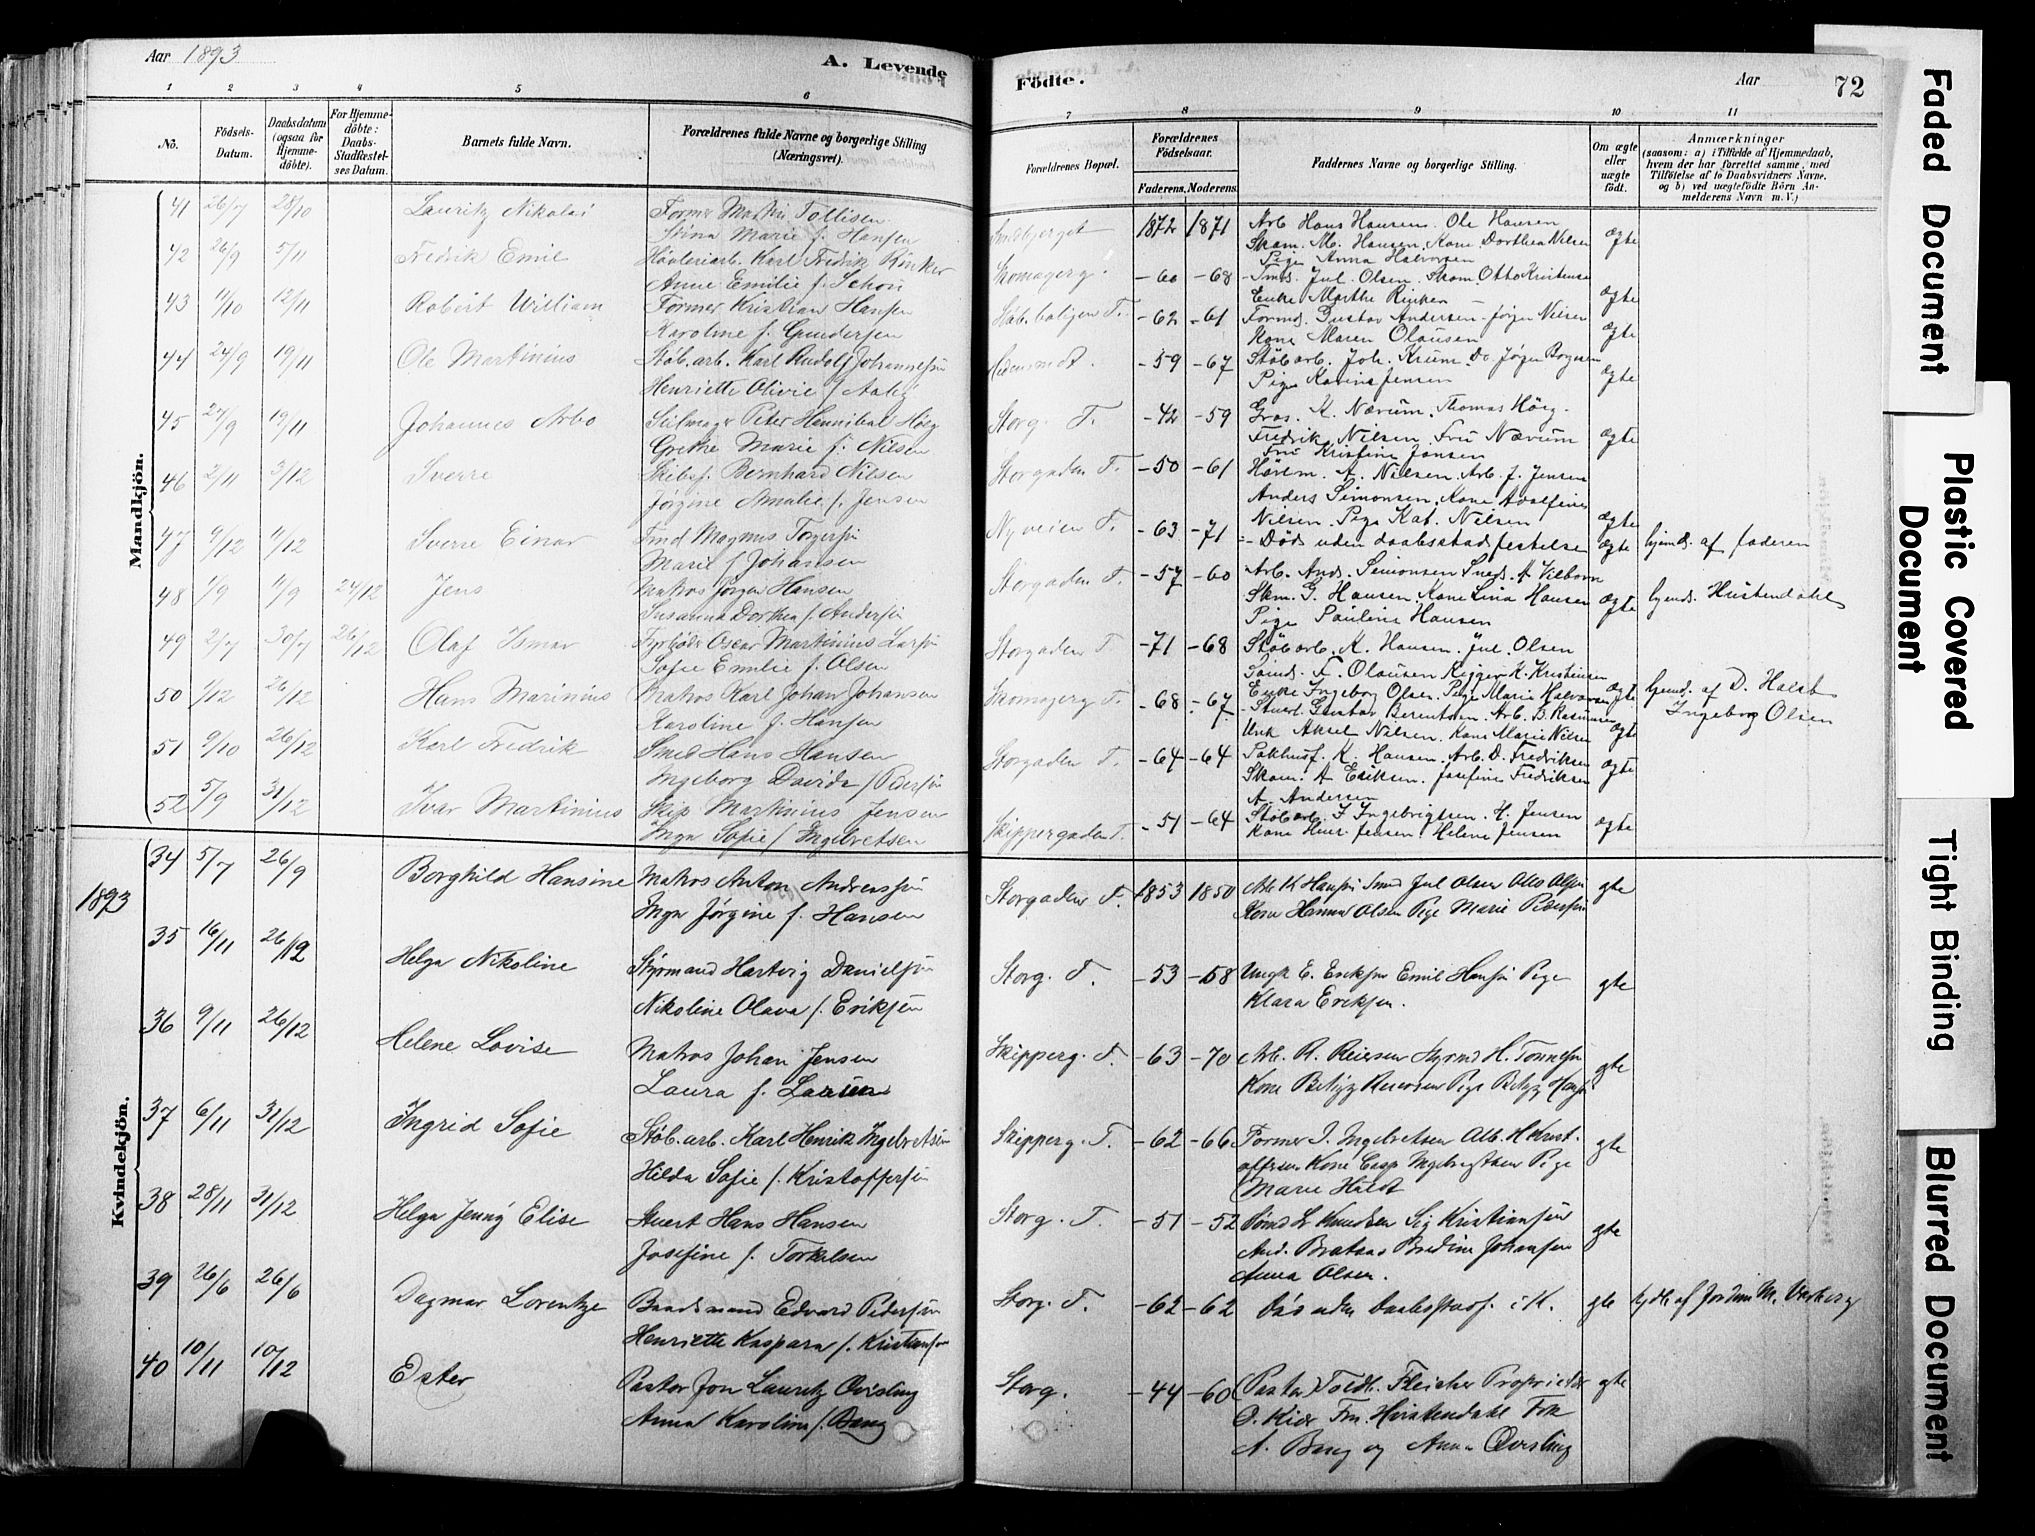 Aar 1893
A. Levende
Födte.
Aar
72
1 2 3 4 5 6 7 8 9 10 11
No.
Födsels-Datum.
Daabsdatum (ogsaa for Hjemme-döbte).
For Hjemme-döbte: Daabs-Stadfestel-ses Datum.
Barnets fulde Navn.
Forældrenes fulde Navne og borgerlige Stilling (Næringsvei).
Forældrenes Bopæl.
Forældrenes Födselsaar.
Faderens. Moderens.
Faddernes Navne og borgerlige Stilling.
Om ægte eller uægte födt.
Anmærkninger
(saasom: a) i Tilfælde af Hjemmedaab, hvem der har forrettet samme, med Tilföielse af to Daabsvidners Navne, og b) ved uægtefödte Börn An-melderens Navn m. V.)
Mandkjön.
41 26/7 28/10 Lauritz Nikolai Former Martin Tollisen 1872 1871 Arb Hans Hansen. Ole Hansen ægte
Stina Marie f. Hansen Skom. M. Hansen. Kone Dorthea Nilsen
Pige Anna Halvorsen
42 26/9 5/11 Fredrik Emil Høvleriarb. Karl Fredrik Rinker Skomagerg. -60 -68 Smd. Jul. Olsen. Skom. Otto Kristensen ægte
Anne Emilie f. Schou Enke Marthe Rinker
43 11/10 12/11 Robert William Former Kristian Hansen Støb. boligen T. -62 -61 Formd. Gustav Andersen. Jørgen Nilsen ægte
Karoline f. Gundersen Kone Maren Olausen
44 24/9 19/11 Ole Martinius Støb. arb. Karl Rudolf Johannessen -59 -67 Støb arb. Joh. Krum. Do Jørgen Borgersen ægte
Henriette Olivie f. Pige Karine Jensen
45 27/9 19/11 Johannes Arbo Seilmager Peter Hannibal Höeg Storg. T. -42 -59 Gros. K. Nærum. Thomas Höeg. ægte
Grethe Marie f. Nilsen Fredrik Nilsen. Fru Nærum
Fru Kristine Jansen
46 2/11 3/12 Sverre Skibsf. Bernhard Nilsen Storgaden T. -50 -61 A. Nilsen. Arb. J. Jensen
Jørgine Amalie f. Jensen Anders Simonsen. Kone Adolfine
Nilsen. Pige Kat. Nilsen ægte
47 9/12 11/12 Sverre Einar Smd Magnus Torgersen Nyveien T. -63 -71 Död uden daabsstadfestelse ægte hjemd. af faderen
Marie f Johansen
48 1/9 11/9 24/12 Jens Matros Jørgen Hansen Storgaden T. -57 -60 Arb. And. Simonsen Sned. A Vilborn ægte hjemd. Hvistendahl
Susanna Dorthea f. Andersen Skm. G. Hansen. Kone Lina Hansen
Pige Pauline Hansen
49 2/7 30/7 26/12 Olaf Ismar Fyrbøder Oscar Martinius Larsen Storgaden T -71 -68 Støb arb. K. Hansen. Jul. Olsen
Sofie Emilie f. Olsen F. Olausen Rigger K. Kristensen
Enke Ingeborg Olsen. Pige Marie Halvorsen ægte hjemd. af D. Holst
Ingeborg Olsen
50 1/12 26/12 Hans Marinius Matros Karl Johan Johansen Skomagerg T. -68 -67 Stuerd. Gustav Berentsen. Arb. B. Rasmussen ægte
Karoline f. Hansen Unk Aksel Nilsen. Kone Marie Nilsen
51 9/10 26/12 Karl Fredrik Smed Hans Hansen Storgaden T. -64 -64 Pakhusf. K. Hansen. Arb. D. Fredriksen ægte
Ingeborg Davida f Pedersen Skom. A Eriksen. Josefine Fredriksen
A. Andersen
52 5/9 31/12 Ivar Martinius Skip Martinius Jensen Skippergaden T. -51 -64 Støb arb. I Ingebrigtsen. H. Jensen ægte
Inga Sofie f Ingebretsen Kone Henr. Jensen. Helene Jensen
Kvindekjön.
1893
34 5/7 26/9 Borghild Hansine Matros Anton Andersen Storgaden T. 1853 1850 Arb K Hansen Smed Jul Olsen Otto Olsen gte
Inga Jørgine f. Hansen Kone Hanna Olsen Pige Marie Pedersen
35 16/11 26/12 Helga Nikoline Styrmand Hartvig Danielsen Storg. T. -53 -58 Ungk E. Eriksen Emil Hansen Pige gte
Nikoline Olava f. Eriksen Klara Eriksen.
36 9/11 26/12 Helene Lovise Matros Johan Jensen Skipperg. T. -63 -70 Arb. R. Reiersen Styrmd H. Tønnesen gte
Laura f. Larsen Kone Betzy Reiersen Pige Betzy Hansen
37 6/11 31/12 Ingrid Sofie Støb. arb. Karl Henrik Ingebretsen Skipperg. T. -62 -66 Former I. Ingebretsen Arb. H Krist- gte
Hilda Sofie f. Kristoffersen offersen Kone Casp Ingebrigtsen Pige
Marie Holst
38 28/11 31/12 Helga Jenny Elise Stuert Hans Hansen Storg. T. -51 -52 L Knudsen Sig Kristiansen gte
Josefine f. Torkelsen And. Brataas Bredine Johansen
Anna Olsen.
39 26/6 26/6 Dagmar Lorentze Baadsmand Edvard Pedersen Storg. T. -62 -62 Døs uden daabsstadf. i K. gte hjdb. af Jordm M. Verberg
Henriette Kaspara f. Kristiansen
40 10/11 10/12 Ester Pastor Jon Lauritz Qvisling Storg. -44 -60 Pastor Toldk. Fleischer Proprietær gte
Anna Karoline f. Bang O. Kiær Fru Hvistendahl Frk
A. Bang og Anna Qvisling
Faded Document
Plastic Covered Document
Tight Binding
Blurred Document